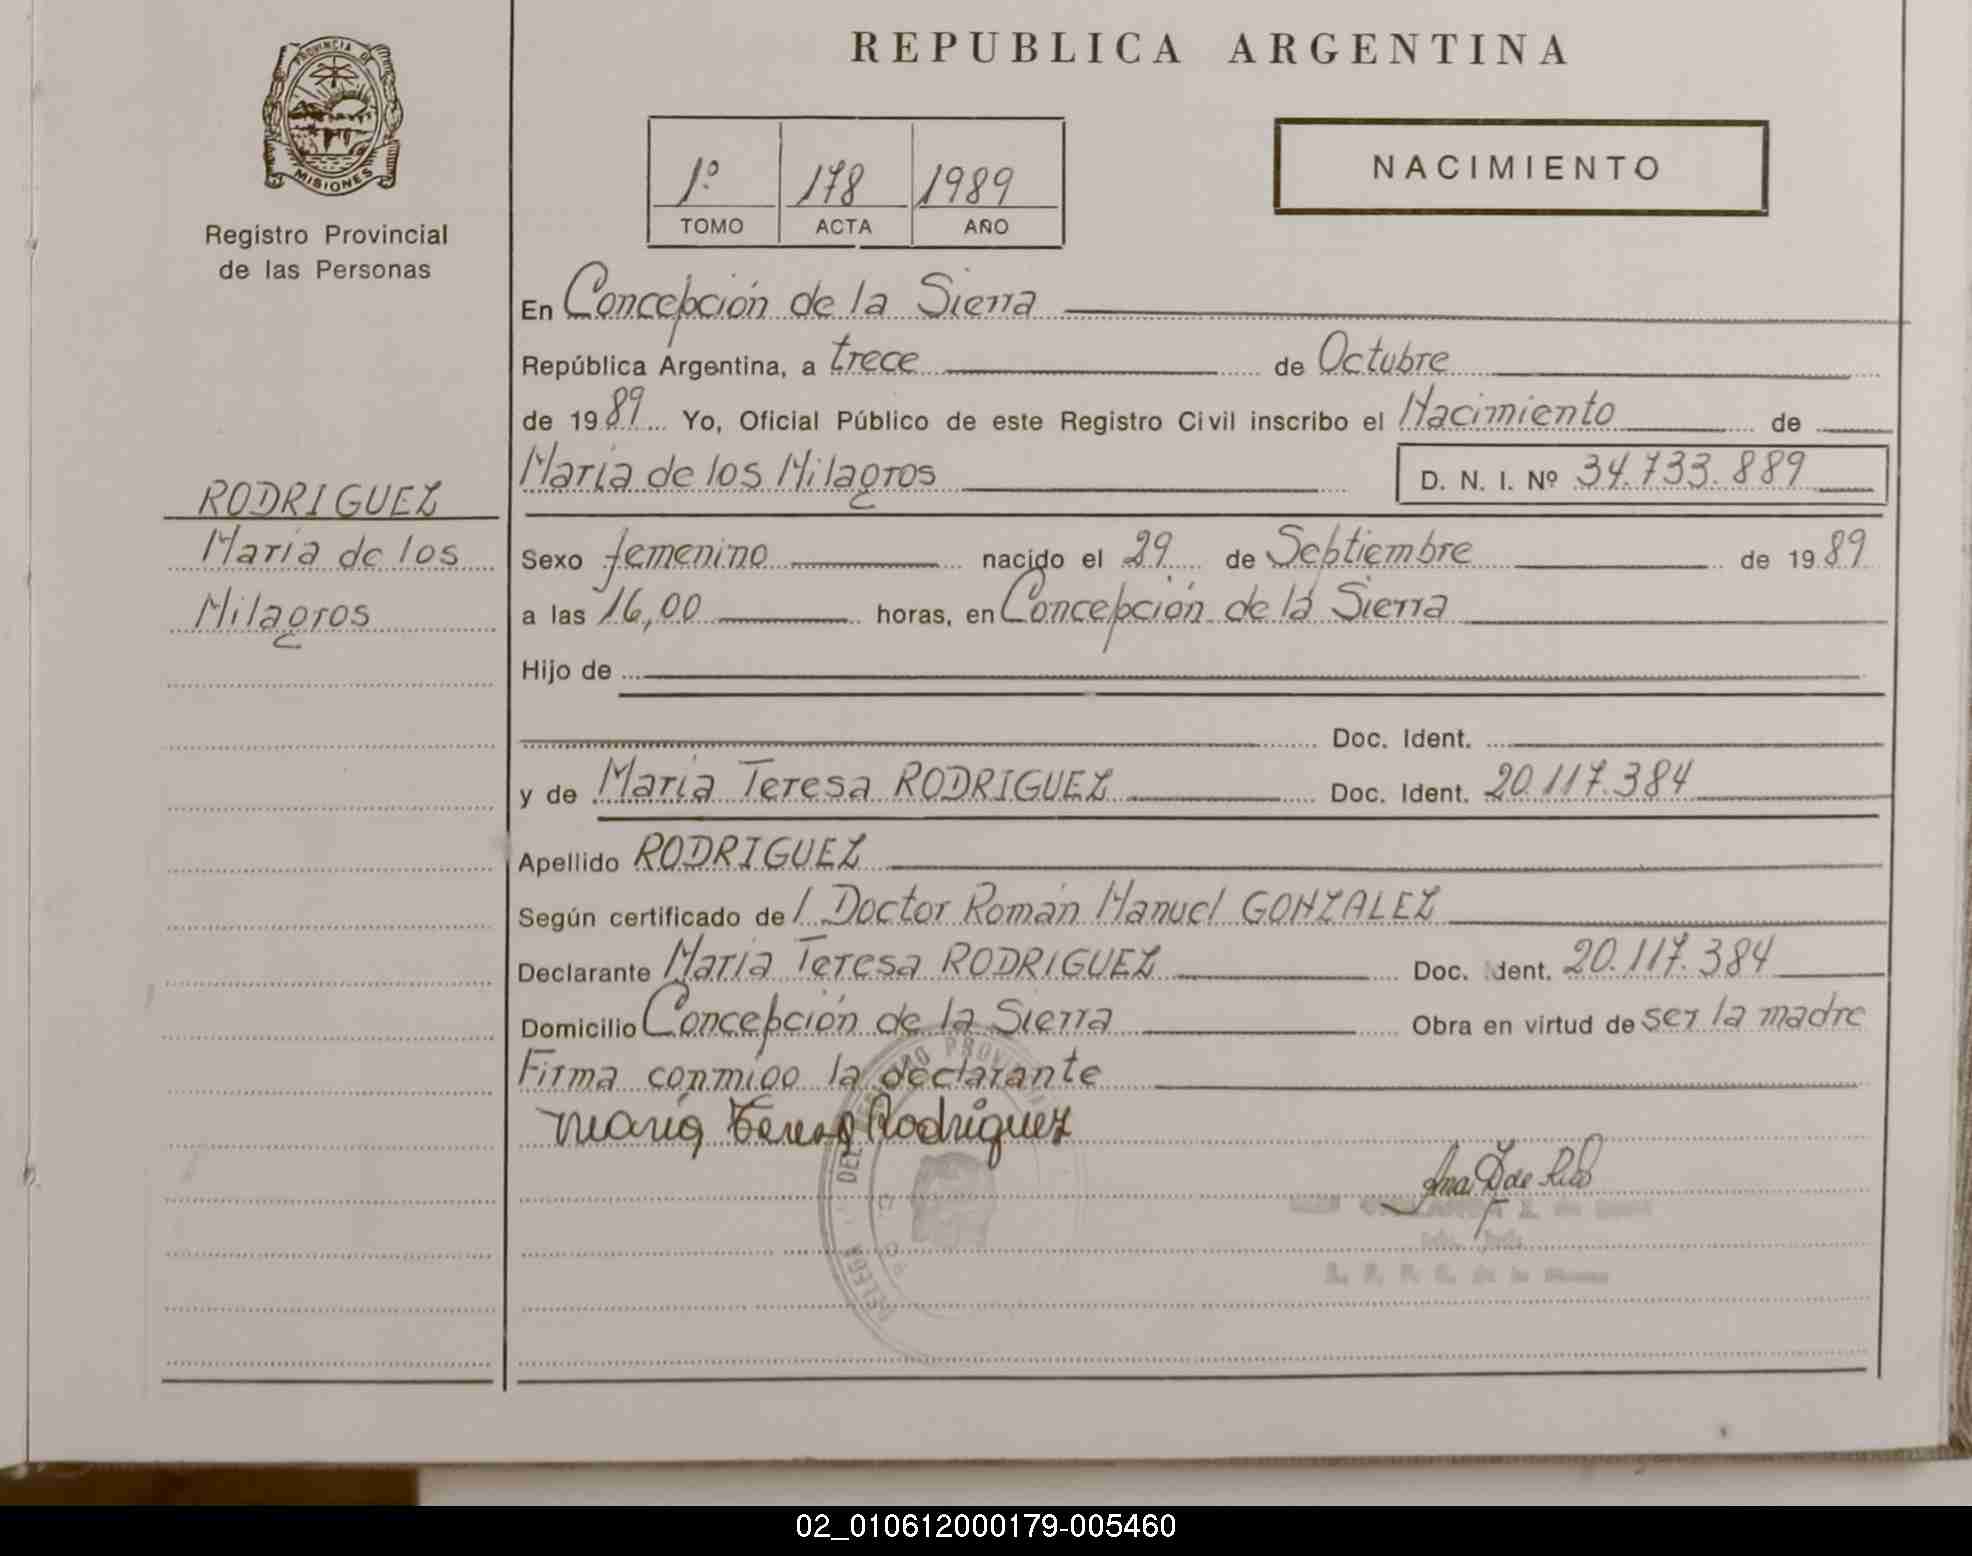 REPUBLICA ARGENTINA
PROVINCIA DE
MISIONES
Registro Provincial
de las Personas
1º 178 1989
TOMO ACTA AÑO
NACIMIENTO
En Concepción de la Sierra
República Argentina, a trece de Octubre
de 1989 Yo, Oficial Público de este Registro Civil inscribo el Nacimiento de
María de los Milagros D. N. I. Nº 34.733.889
RODRIGUEZ
María de los
Milagros
Sexo femenino nacido el 29 de Septiembre de 1989
a las 16,00 horas, en Concepción de la Sierra
Hijo de
Doc. Ident.
y de María Teresa RODRIGUEZ Doc. Ident. 20.117.384
Apellido RODRIGUEZ
Según certificado de l Doctor Román Manuel GONZALEZ
Declarante María Teresa RODRIGUEZ Doc. Ident. 20.117.384
Domicilio Concepción de la Sierra Obra en virtud de ser la madre
Firma conmigo la declarante
María Teresa Rodríguez
DEL REGISTRO PROVINCIAL
02_010612000179-005460